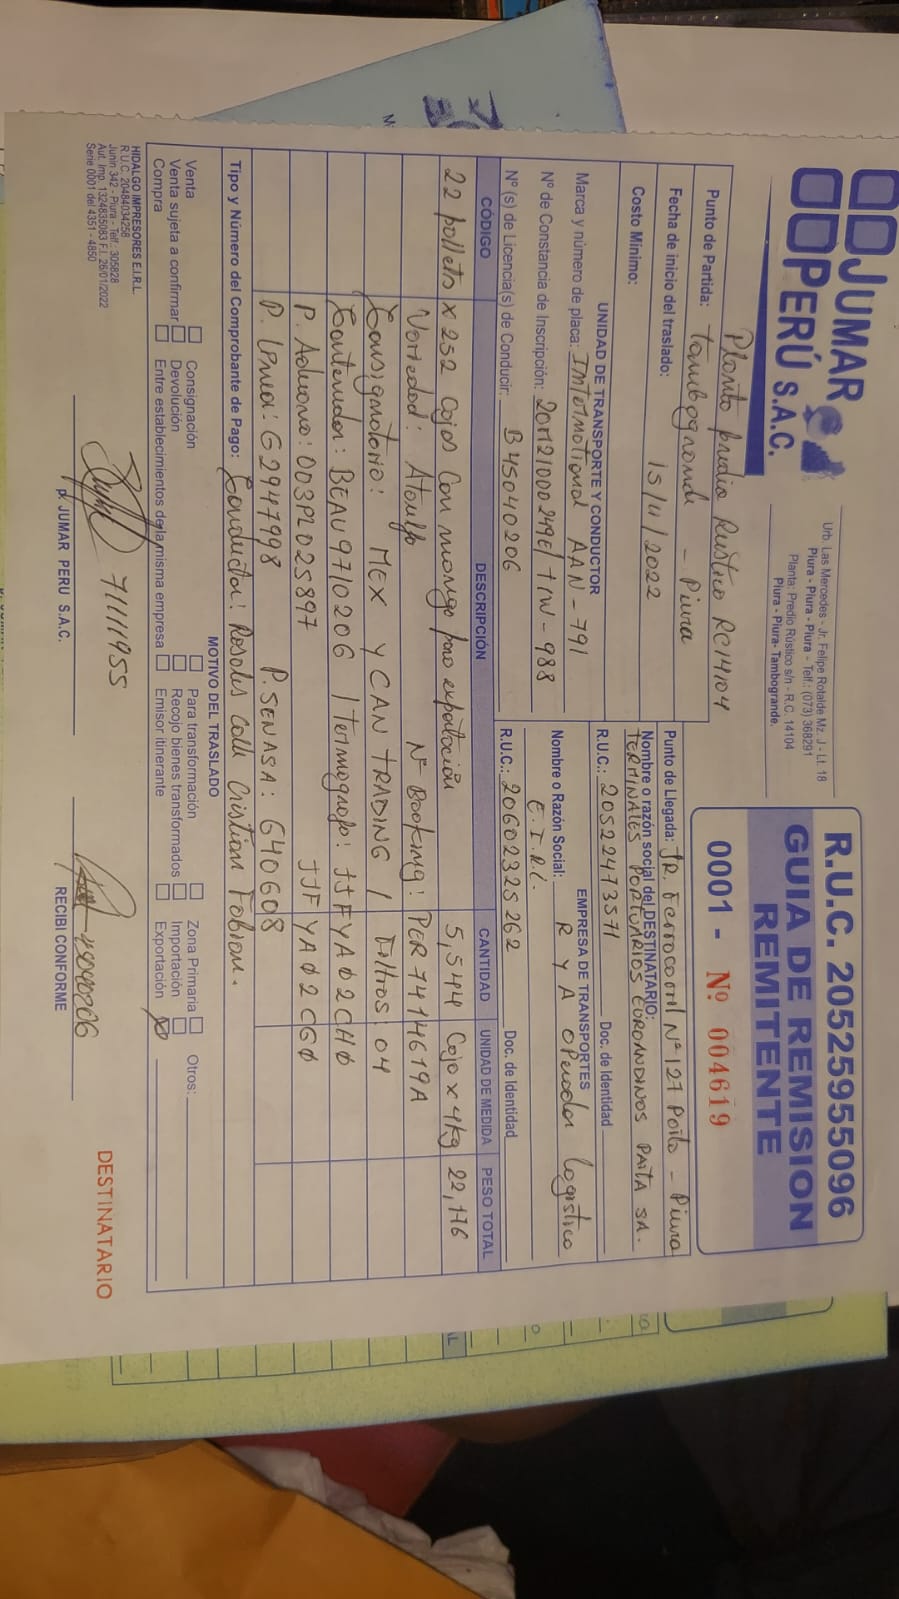 JUMAR
PERÚ S.A.C.
Urb. Las Mercedes - Jr. Felipe Rotalde Mz. J - Lt. 18
Piura - Piura - Piura - Telf.: (073) 368291
Planta: Predio Rústico s/n - R.C. 14104
Piura - Piura- Tambogrande.
R.U.C. 20525955096
GUIA DE REMISION
REMITENTE
0001 - Nº 004619
Planta predio Rustico RC14104
Punto de Partida: Tambogrande - Piura
Fecha de inicio del traslado: 15/11/2022
Costo Mínimo:
Punto de Llegada: JR. Ferrocarril Nº 127 Paita - Piura
Nombre o razón social del DESTINATARIO:
TERMINALES PORTUARIOS EUROANDINOS PAITA SA.
R.U.C.: 20522473571 Doc. de Identidad
UNIDAD DE TRANSPORTE Y CONDUCTOR
Marca y número de placa: INTERNATIONAL AAN-791
Nº de Constancia de Inscripción: 20M121000249E/TIW-988
Nº (s) de Licencia(s) de Conducir: B45040206
EMPRESA DE TRANSPORTES
Nombre o Razón Social: R Y A OPerador logistico
E.I.R.L.
R.U.C.: 20602325262 Doc. de Identidad
CÓDIGO DESCRIPCIÓN CANTIDAD UNIDAD DE MEDIDA PESO TOTAL
22 pallets x 252 Cajas Con mango para exportación 5,544 Caja x 4kg 22,176
Variedad: Ataulfo Nº Booking: PER7414619A
Consignatario: MEX Y CAN TRADING / Filtros: 04
Contenedor: BEAU9710206 / Termografo: JJFYA02CH0
P. Aduana: 003PL025897 JJFYA02CG0
P. Linea: G2947998 P. SENASA: 640608
Tipo y Número del Comprobante de Pago: Conductor: Rosales Calle Cristian Fabian.
MOTIVO DEL TRASLADO
Venta
Venta sujeta a confirmar
Compra
Consignación
Devolución
Entre establecimientos de la misma empresa
Para transformación
Recojo bienes transformados
Emisor itinerante
Zona Primaria
Importación
Exportación X
Otros:
HIDALGO IMPRESORES E.I.R.L.
R.U.C. 20484034258
Junin 342 - Piura - Telf.: 305828
Aut. Imp. 1324835083 F.I. 26/01/2022
Serie 0001 del 4351 - 4850
71111955
p. JUMAR PERU S.A.C.
RECIBI CONFORME
DESTINATARIO